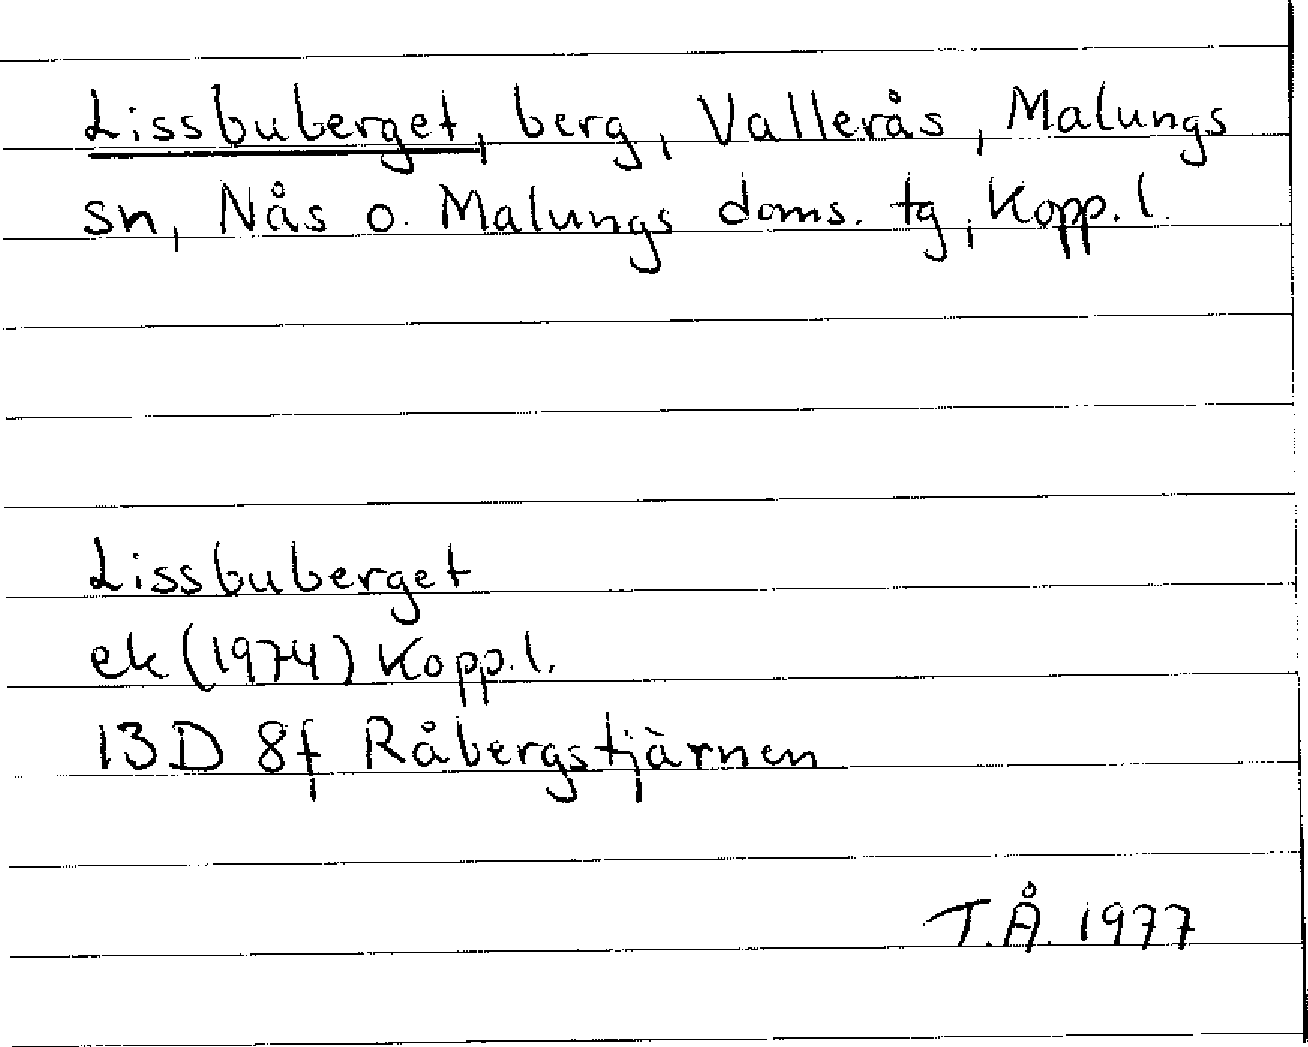 Lissbuberget, berg, Vallerås, Malungs
sn, Nås o. Malungs doms. tg, Kopp. l.
Lissbuberget
ek (1974) Kopp. l.
13D 8f Råbergstjärnen
T.Å. 1977